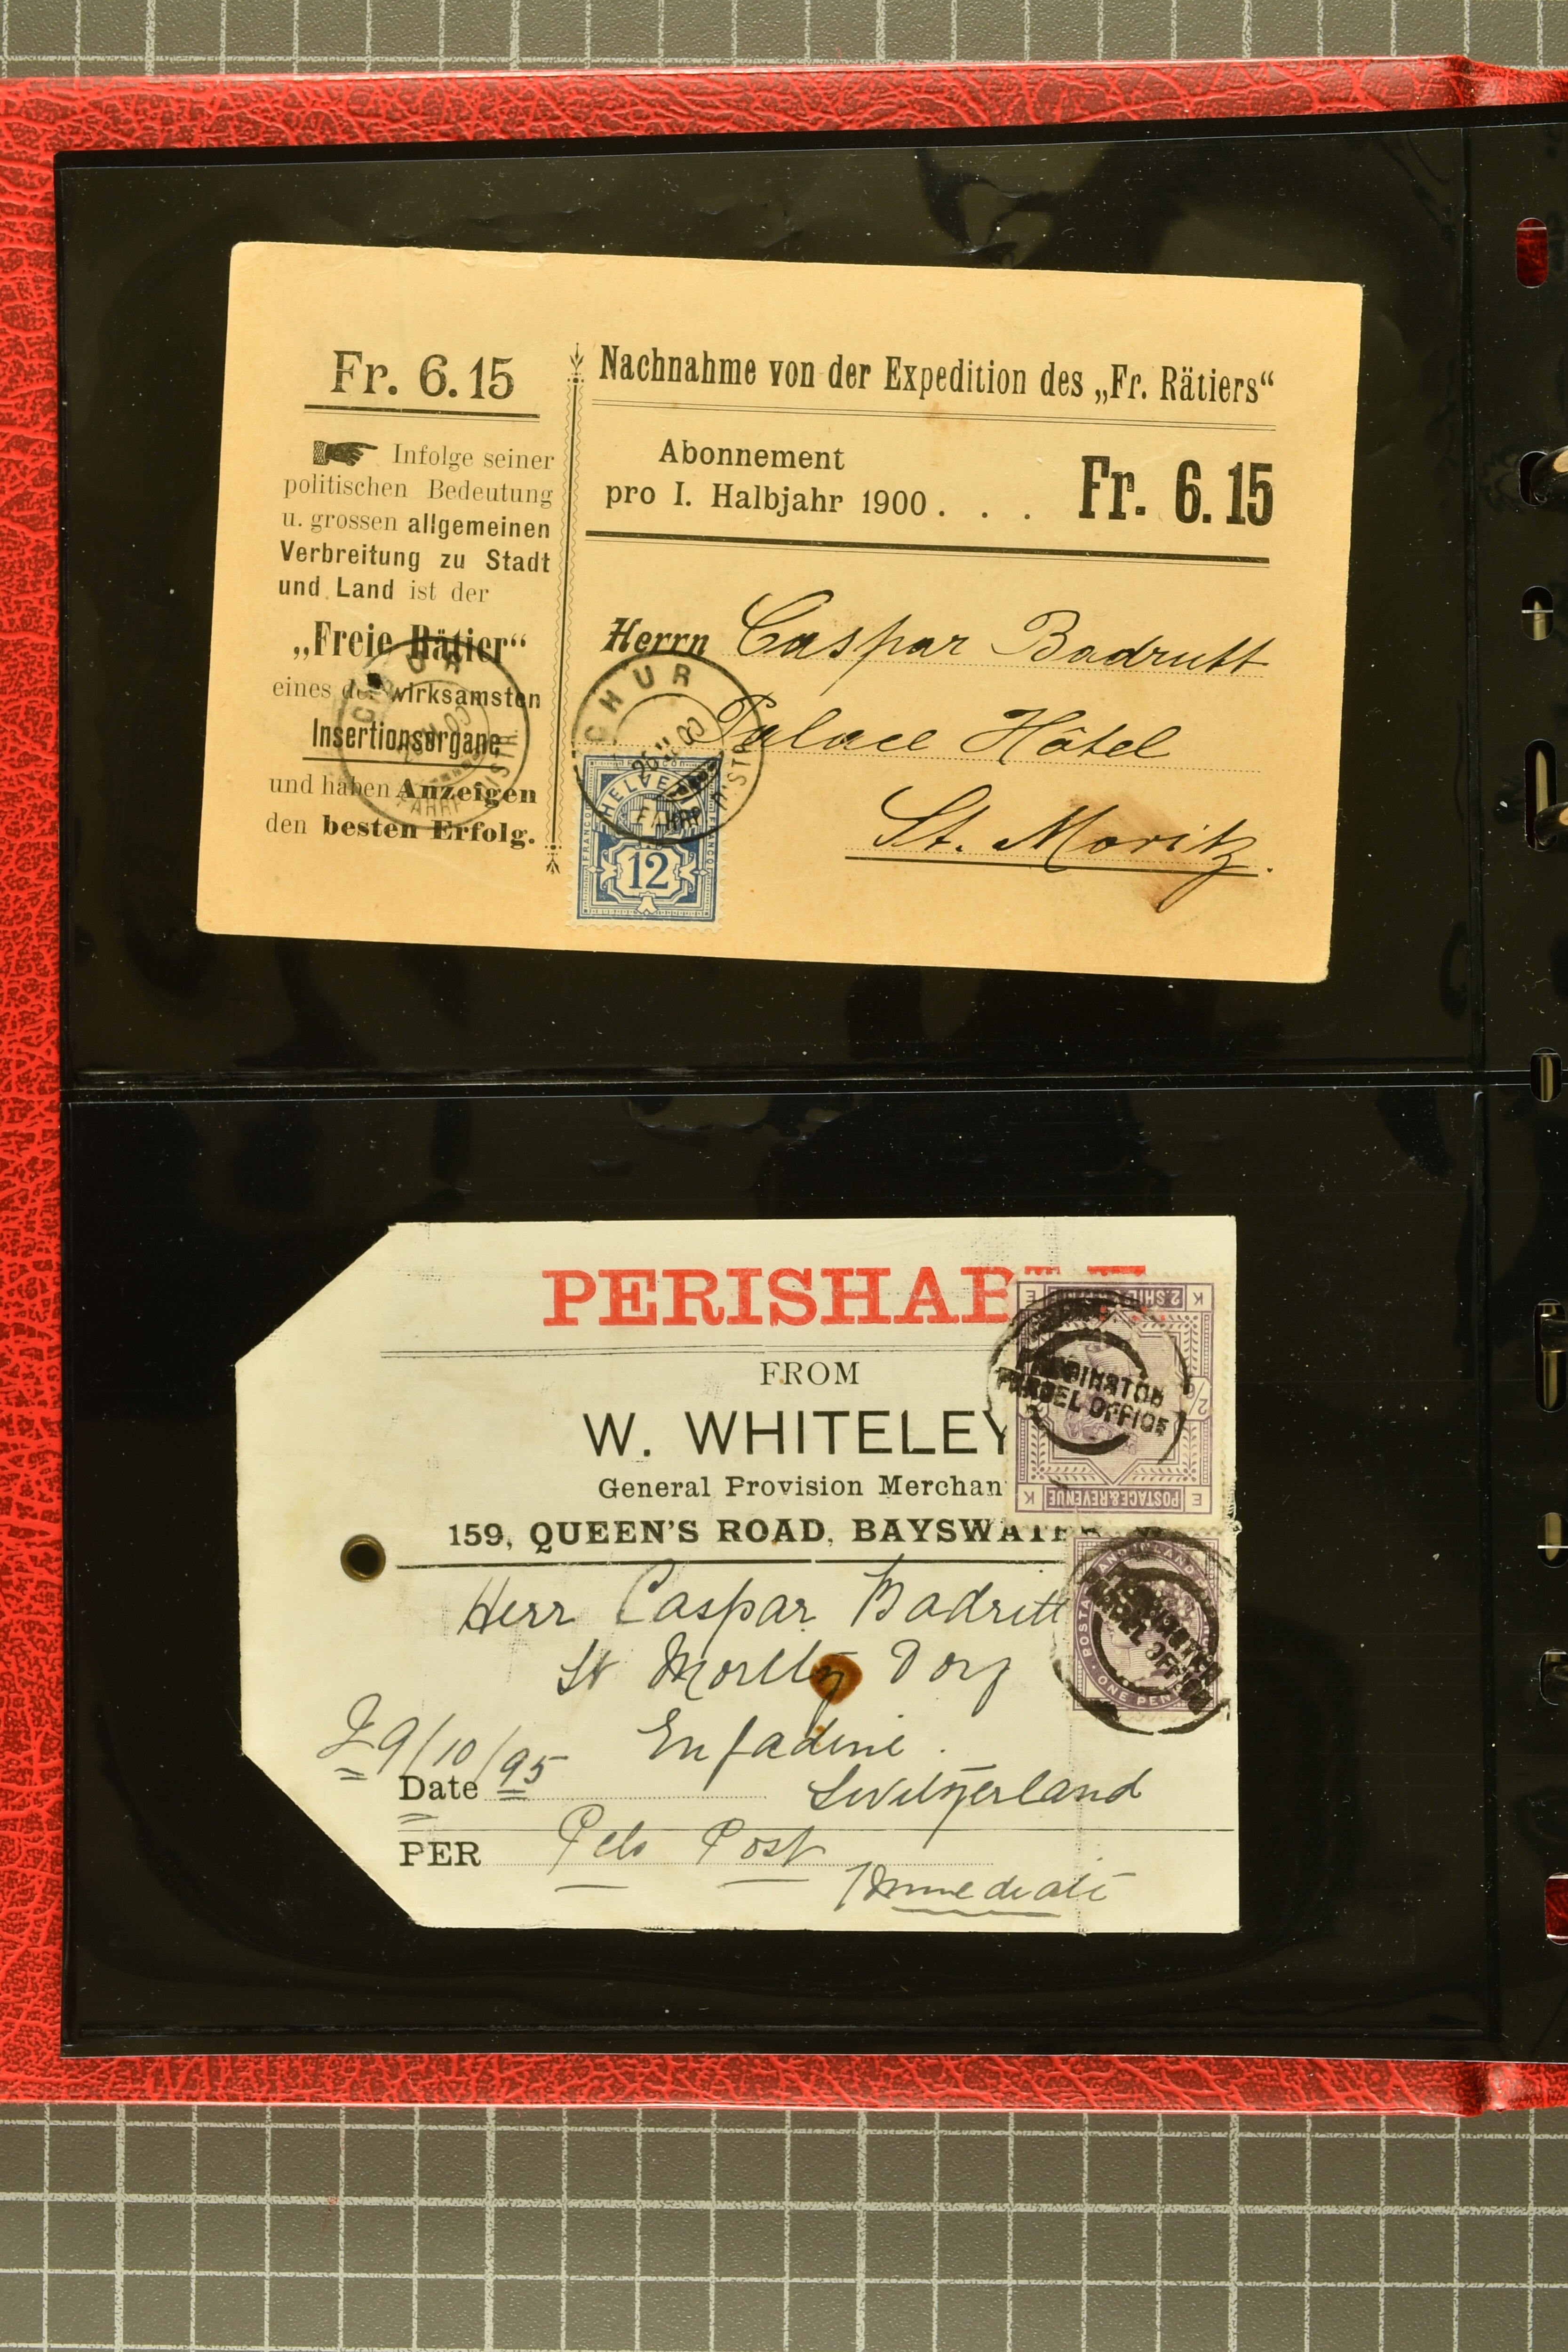 Fr. 6.15
☞ Infolge seiner
politischen Bedeutung
u. grossen allgemeinen
Verbreitung zu Stadt
und Land ist der
„Freie Rätier“
eines der wirksamsten
Insertionsorgane
und haben Anzeigen
den besten Erfolg.
Nachnahme von der Expedition des „Fr. Rätiers“
Abonnement
pro I. Halbjahr 1900 . . . Fr. 6.15
Herrn Caspar Badrutt
Palace Hôtel
St. Moritz.
CHUR
FRANCO
HELVETIA
FRANCO
12
PERISHAB
FROM
W. WHITELEY
General Provision Merchan
159, QUEEN'S ROAD, BAYSWATER
Herr Caspar Badritt
St Moritz Dorf
Engadine.
Switzerland
29/10/95
Date
PER Pcls Post
Immediate
K 2.SHIL E
PADDINGTON
PARCEL OFFICE
2/6
E POSTAGE&REVENUE K
POSTAGE AND INLAND
ONE PEN
PARCEL OFFICE